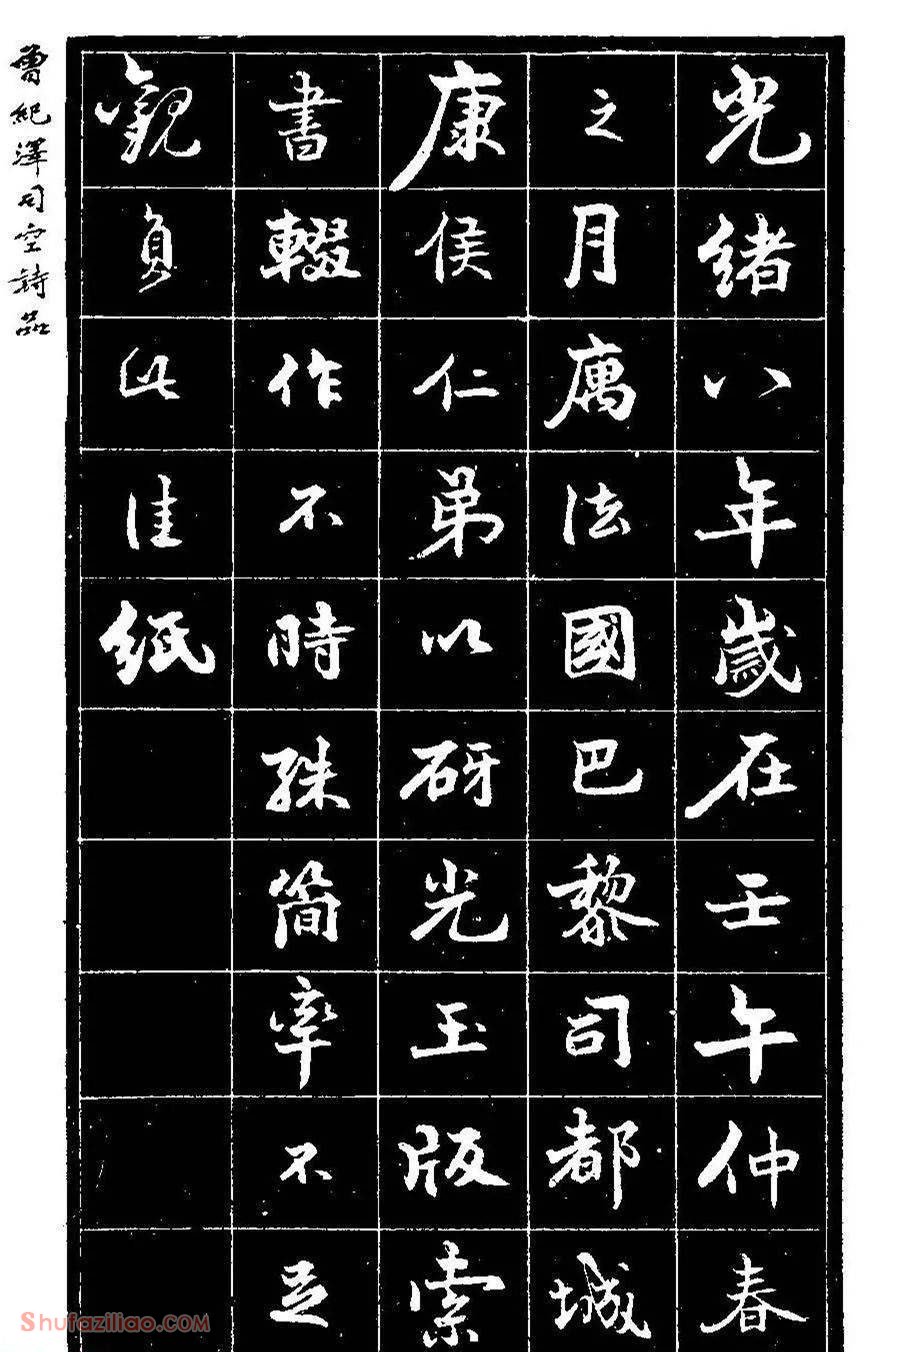 光緒八年歲在壬午仲春
之月寓法國巴黎司都城
康侯仁弟以砑光玉版索
書輟作不時殊簡率不足
觀負此佳紙
曾紀澤司空詩品
Shufaziliao.com